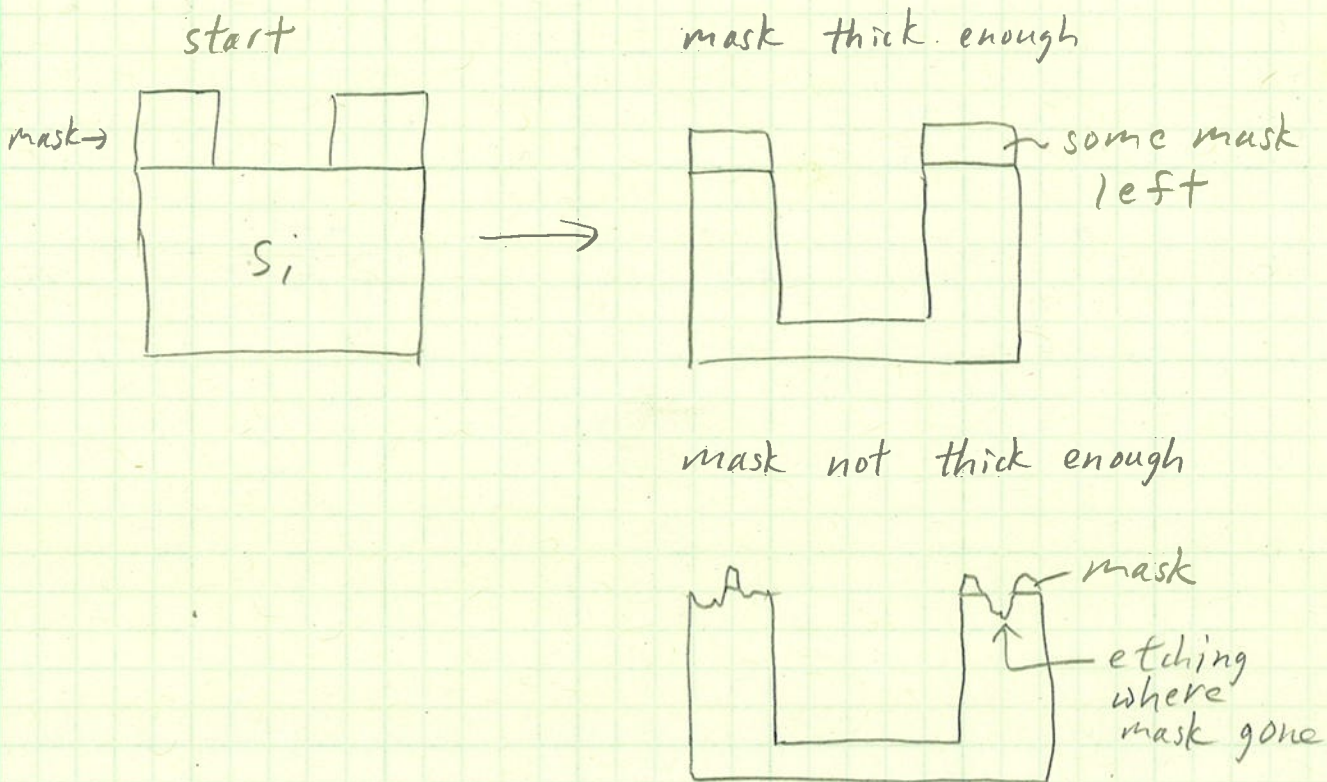 start
mask thick enough
mask→
some mask
left
Si
mask not thick enough
mask
etching
where
mask gone